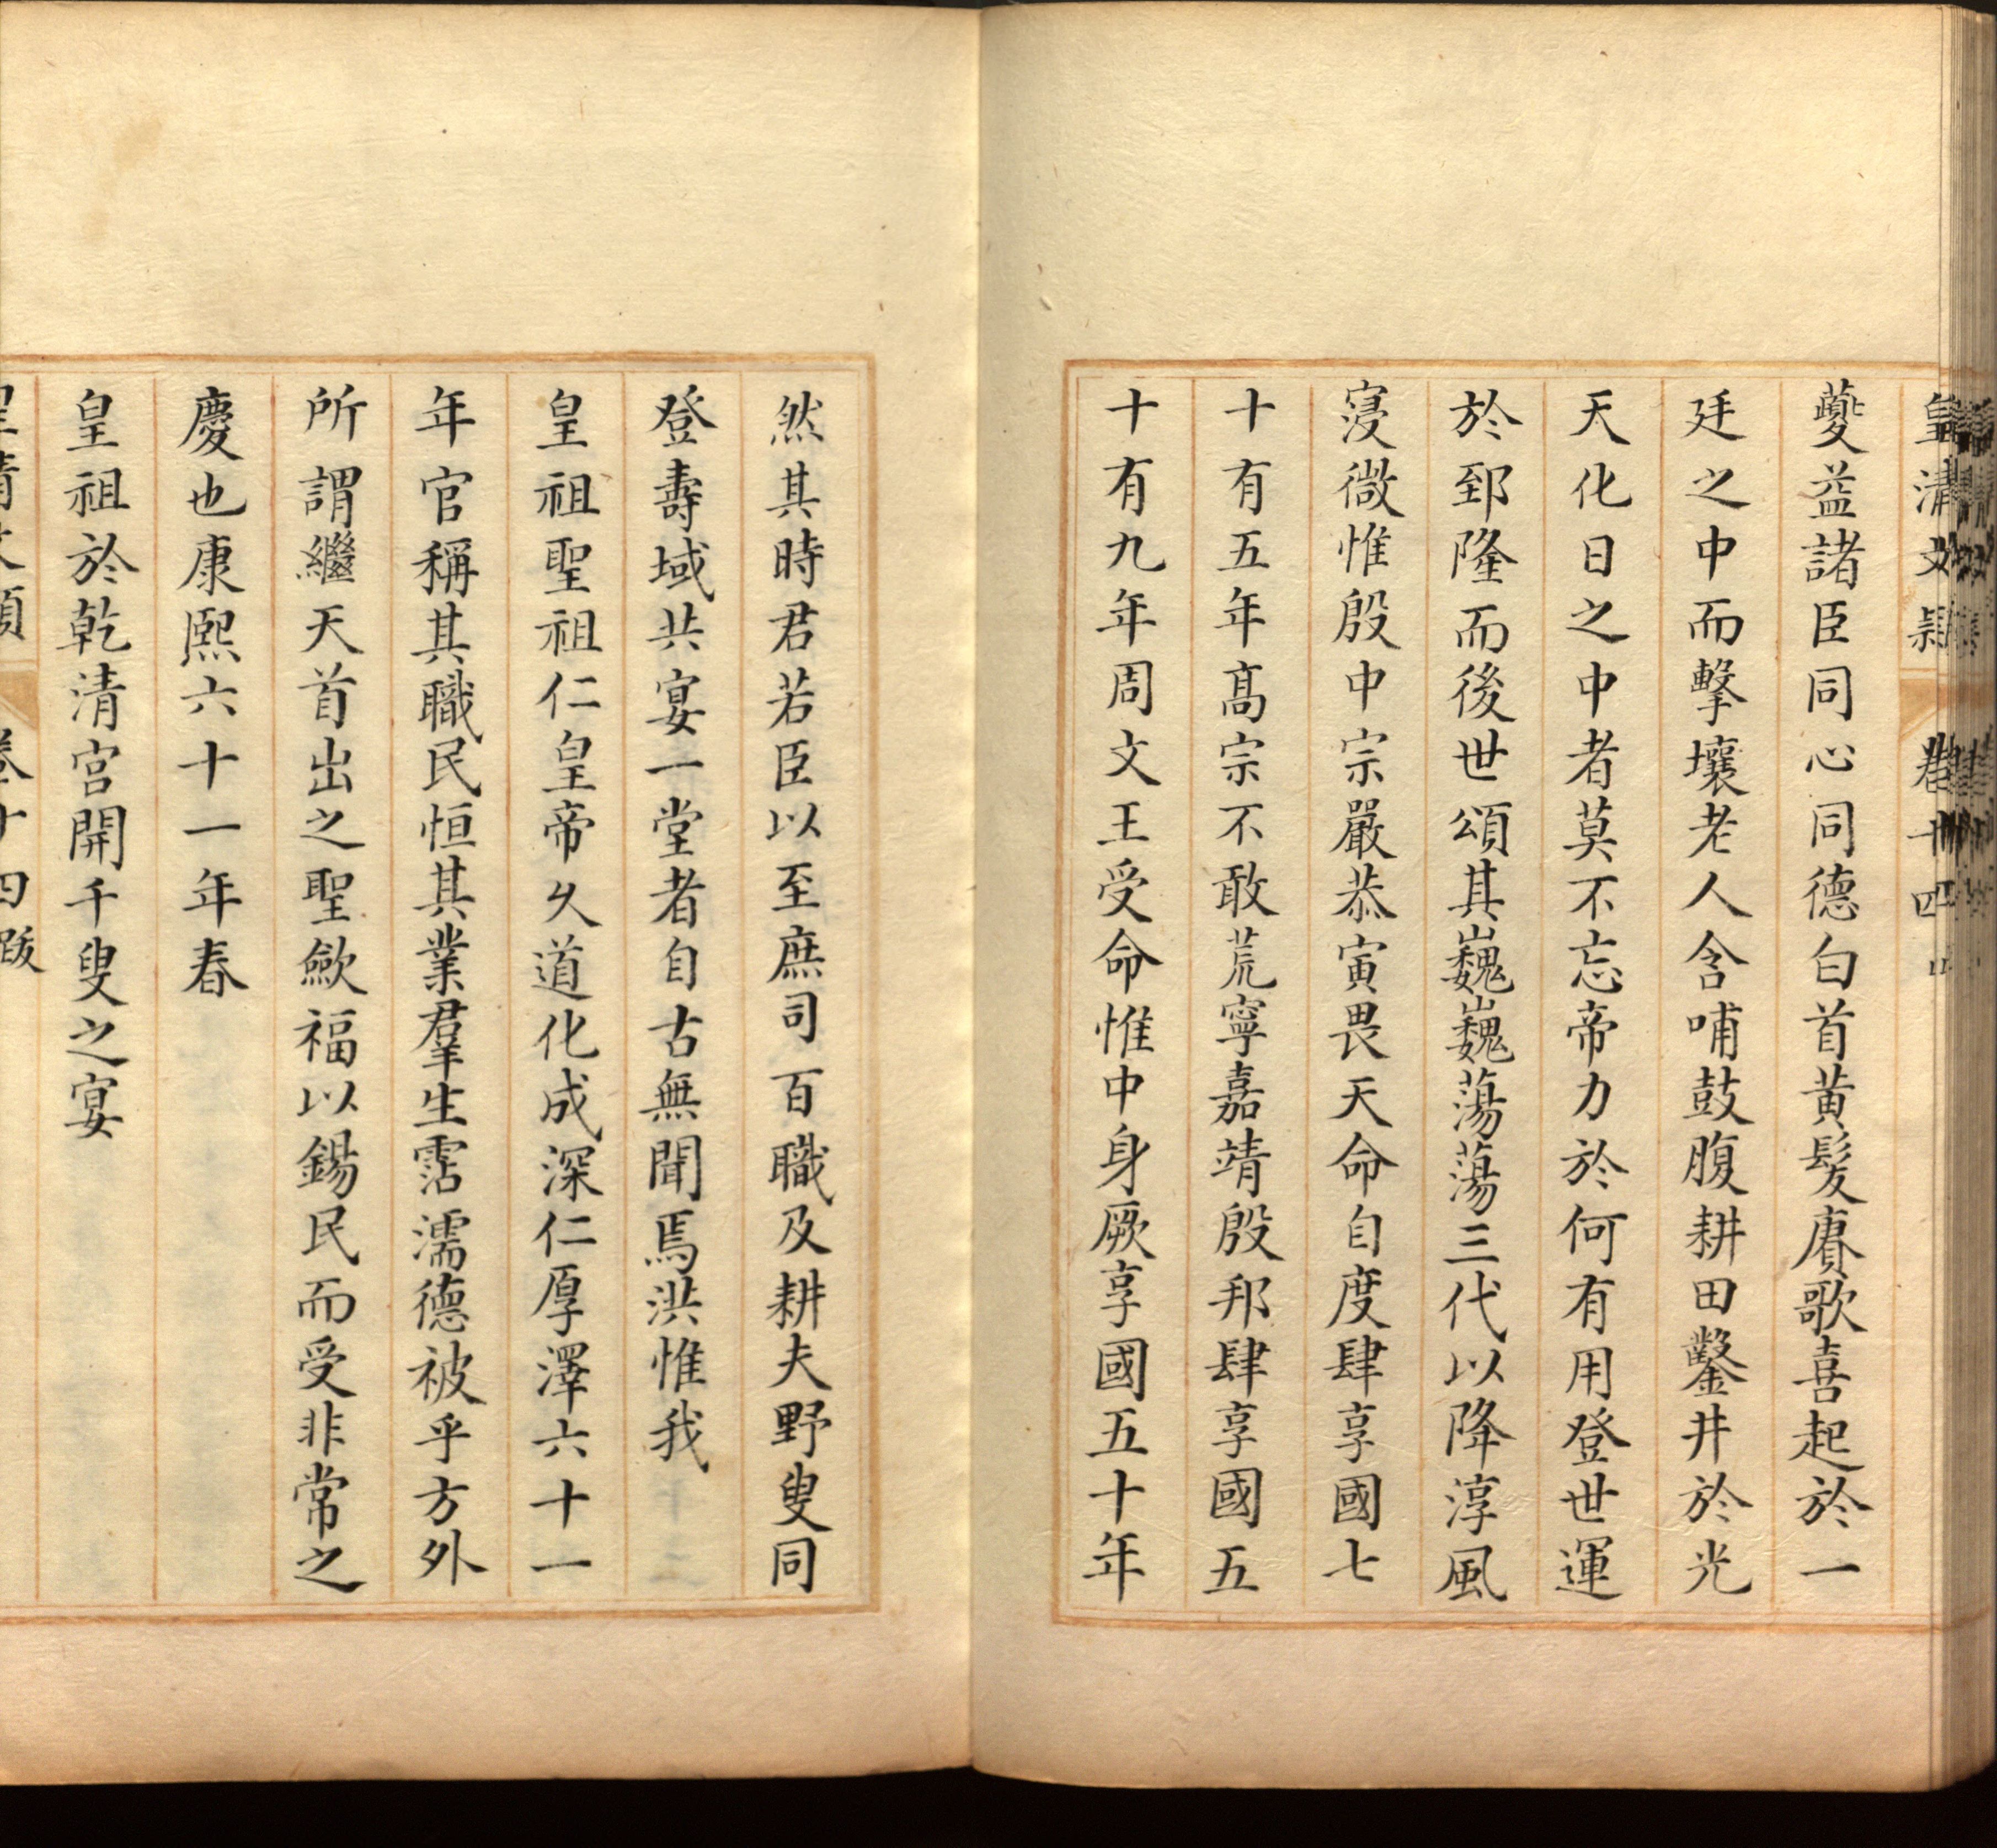 皇清文穎 卷十四
夔益諸臣同心同德白首黄髮賡歌喜起於一
廷之中而擊壤老人含哺鼓腹耕田鑿井於光
天化日之中者莫不忘帝力於何有用登世運
於郅隆而後世頌其巍巍蕩蕩三代以降淳風
寖微惟殷中宗嚴恭寅畏天命自度肆享國七
十有五年髙宗不敢荒寧嘉靖殷邦肆享國五
十有九年周文王受命惟中身厥享國五十年
然其時君若臣以至庶司百職及耕夫野叟同
登壽域共宴一堂者自古無聞焉洪惟我
皇祖聖祖仁皇帝乆道化成深仁厚澤六十一
年官稱其職民恒其業羣生霑濡德被乎方外
所謂繼天首出之聖歛福以錫民而受非常之
慶也康熙六十一年春
皇祖於乾清宫開千叟之宴
皇清文穎 卷十四跋